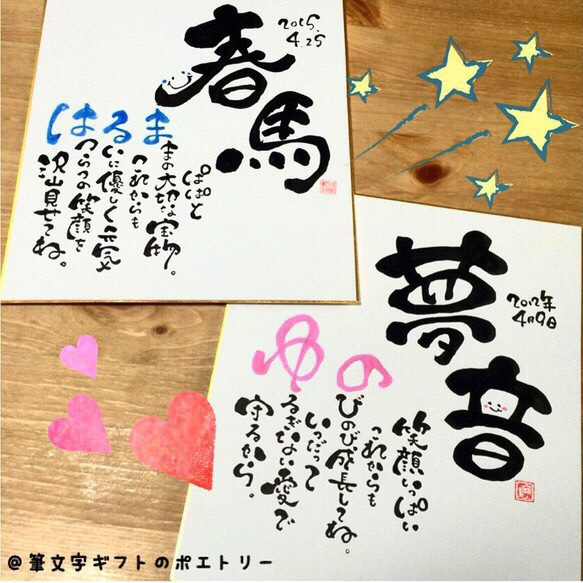 2015.
4.25
春馬
はるま
ぱぱと
まの大切な宝物。
これからも
いに優しく元気
つらつの笑顔を
沢山見せてね。
2012年
4月9日
夢音
ゆの
笑顔いっぱい
これからも
びのび成長してね。
いつだって
るぎない愛で
守るから。
@筆文字ギフトのポエトリー